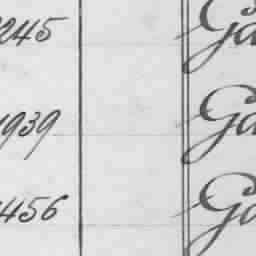 245 Ga
1939 Ga
1456 Ga